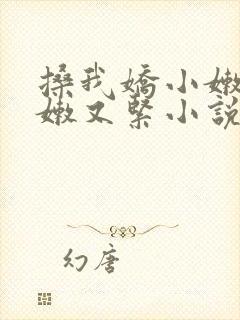 搡我嬌小嫩
嫩又緊小說
幻唐